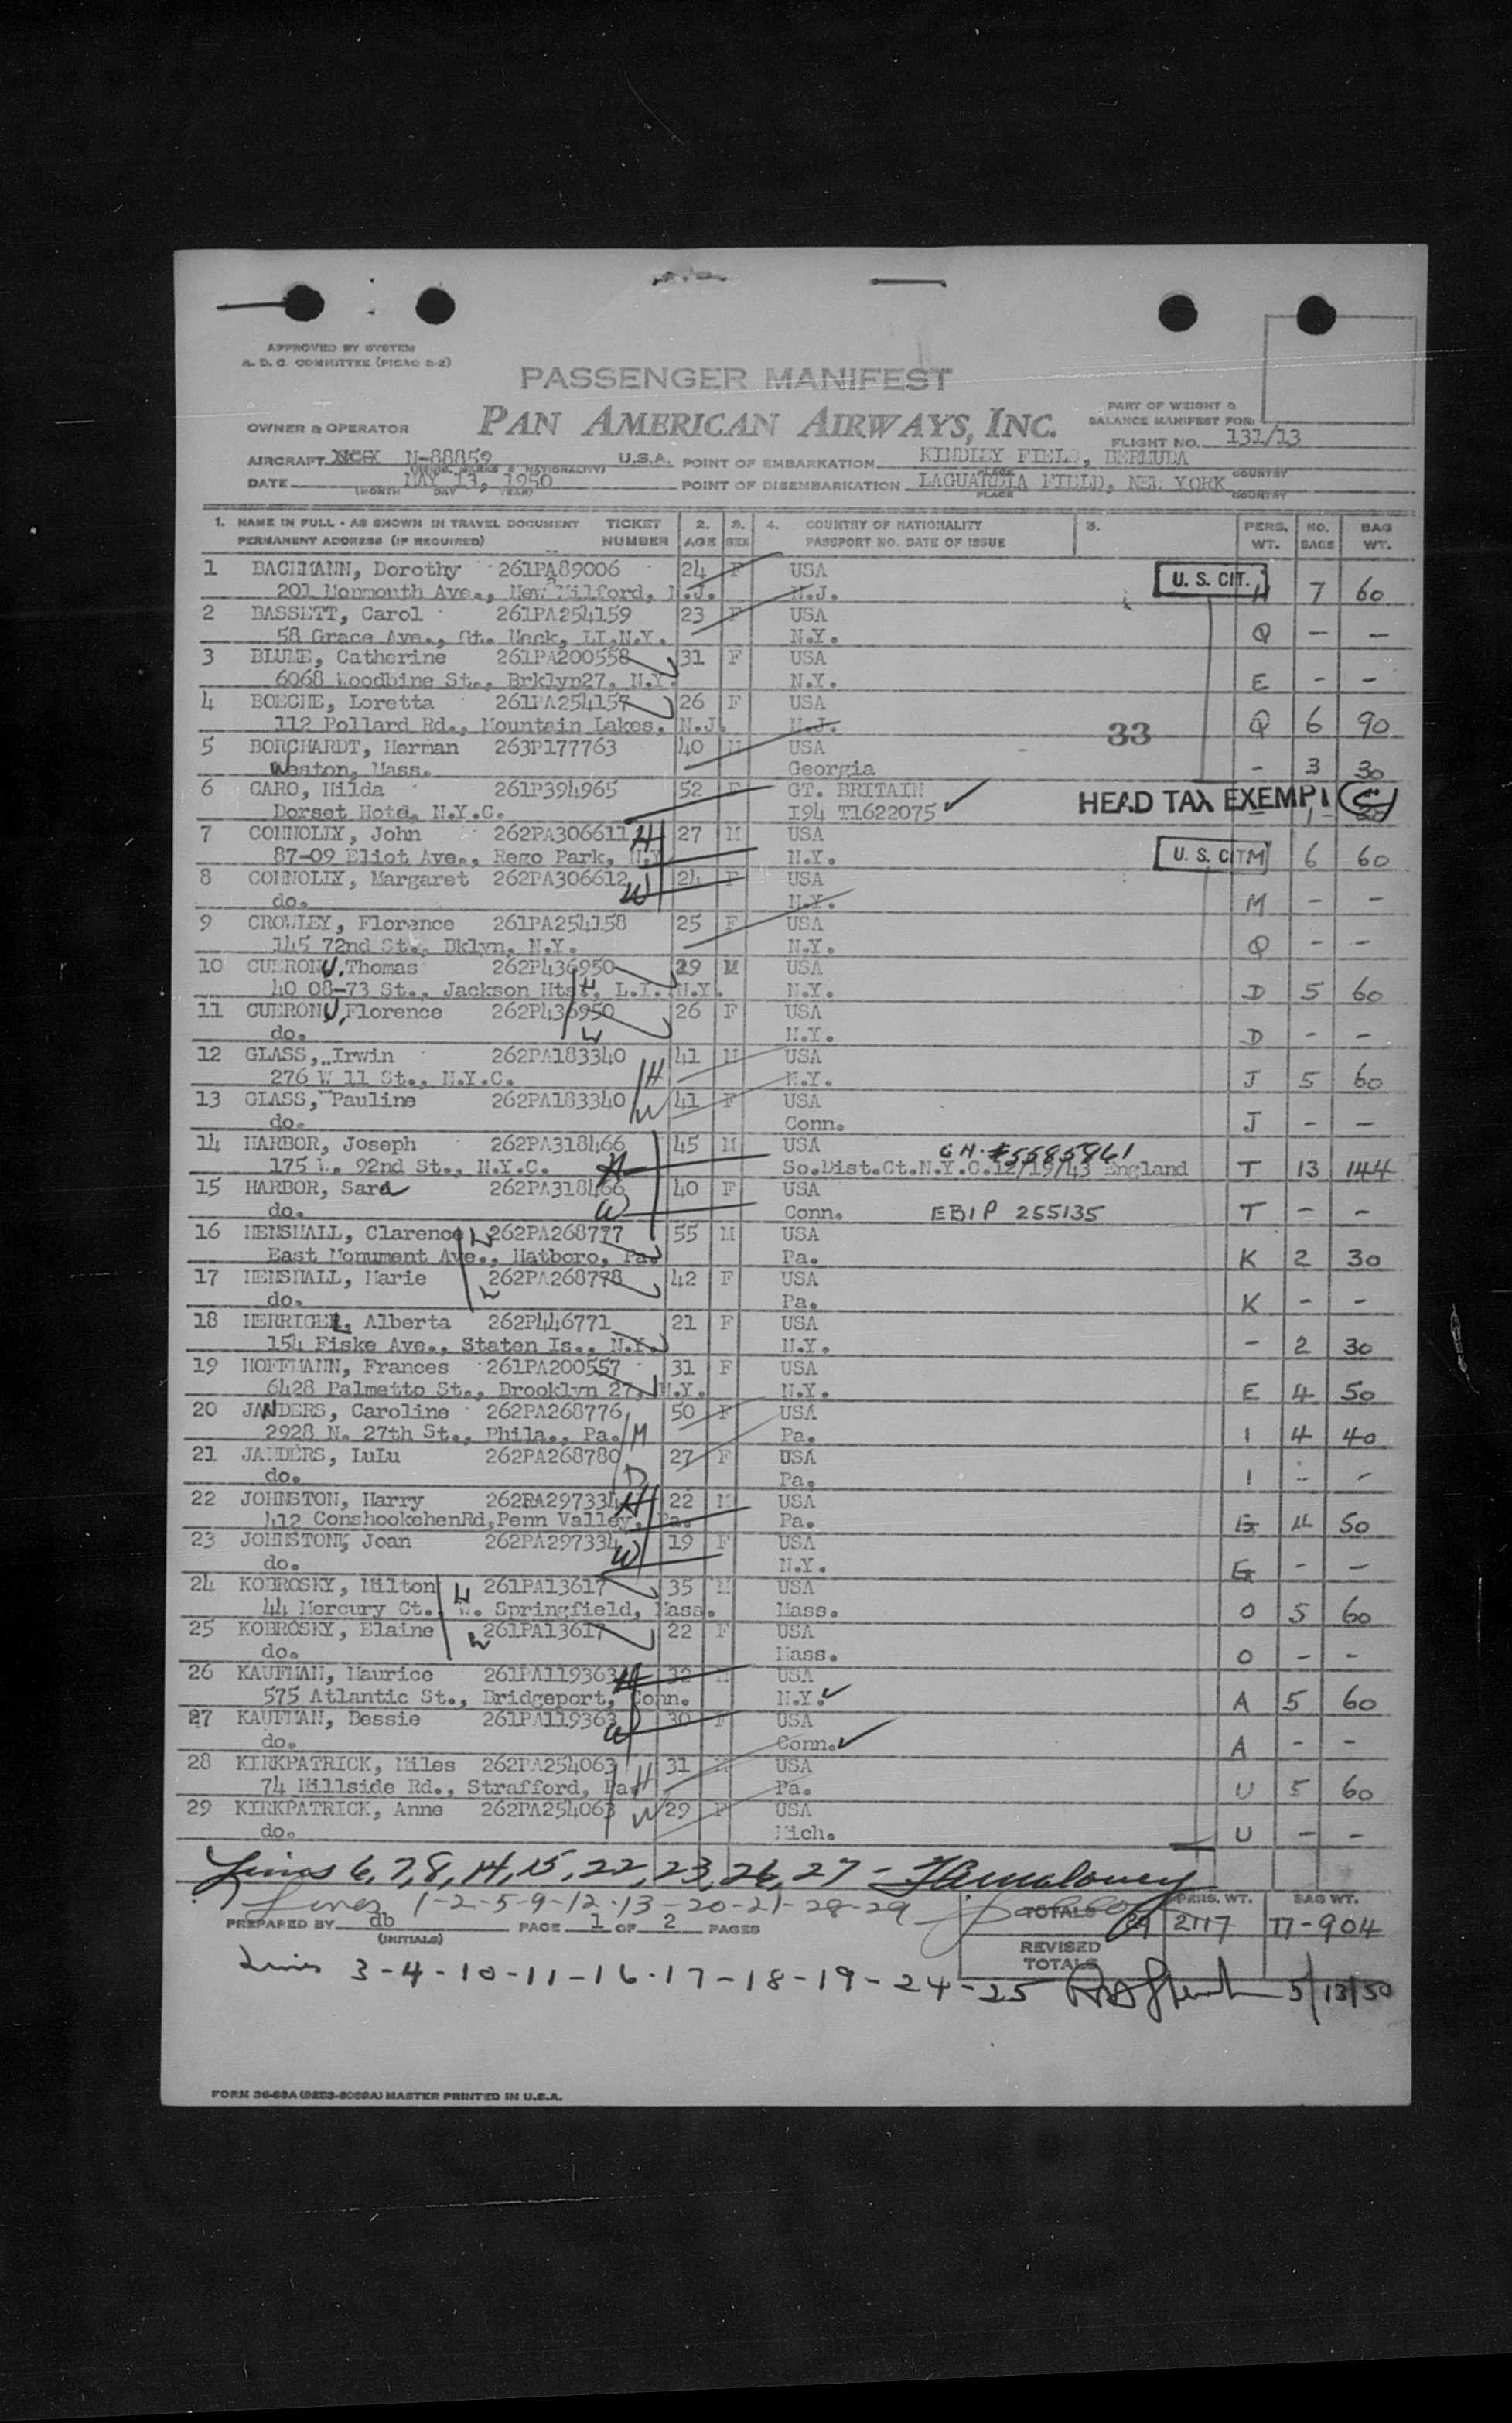 APPROVED BY SYSTEM
A. D. C. COMMITTEE (PICAO S-2)
PASSENGER MANIFEST
PAN AMERICAN AIRWAYS, INC.
PART OF WEIGHT &
BALANCE MANIFEST FOR:
OWNER & OPERATOR
FLIGHT NO. 131/13
AIRCRAFT N-88859 U.S.A. POINT OF EMBARKATION KINDLEY FIELD, BERMUDA
(MARKS & NATIONALITY) PLACE COUNTRY
DATE MAY 13, 1950 POINT OF DISEMBARKATION LAGUARDIA FIELD, NEW YORK
(MONTH DAY YEAR) PLACE COUNTRY
1. NAME IN FULL - AS SHOWN IN TRAVEL DOCUMENT TICKET 2. 3. 4. COUNTRY OF NATIONALITY 5. PERS. NO. BAG
PERMANENT ADDRESS (IF REQUIRED) NUMBER AGE SEX PASSPORT NO. DATE OF ISSUE WT. BAGS WT.
1 BACHMANN, Dorothy 261PA89006 24 F USA U. S. CIT.
201 Monmouth Ave., New Milford, N.J. N.J. 7 60
2 BASSETT, Carol 261PA254159 23 F USA
58 Grace Ave., Gt. Neck, LI.N.Y. N.Y. Q - -
3 BLUME, Catherine 261PA200558 31 F USA
6068 Woodbine St., Brklyn27, N.Y. N.Y. E - -
4 BOECHE, Loretta 261PA254157 26 F USA
112 Pollard Rd., Mountain Lakes. N.J. N.J. 33 Q 6 90
5 BORCHARDT, Herman 263P177763 40 M USA
Weston, Mass. Georgia - 3 30
6 CARO, Hilda 261P394965 52 F GT. BRITAIN
Dorset Hotd, N.Y.C. I94 T1622075 ✓ HEAD TAX EXEMPT
7 CONNOLLY, John 262PA306611 H 27 M USA
87-09 Eliot Ave., Rego Park, N.Y. N.Y. U. S. CIT M 6 60
8 CONNOLLY, Margaret 262PA306612 W 24 F USA
do. N.Y. M - -
9 CROWLEY, Florence 261PA254158 25 F USA
145 72nd St., Bklyn, N.Y. N.Y. Q - -
10 CUERONU, Thomas 262P436950 29 M USA
40 08-73 St., Jackson Hts., L.I. N.Y. H N.Y. D 5 60
11 CUERONU, Florence 262P436950 26 F USA
do. W N.Y. D - -
12 GLASS, Irwin 262PA183340 41 M USA
276 W 11 St., N.Y.C. H N.Y. J 5 60
13 GLASS, Pauline 262PA183340 W 41 F USA
do. Conn. J - -
14 HARBOR, Joseph 262PA318466 45 M USA CN. #5585861
175 W. 92nd St., N.Y.C. H So.Dist.Ct.N.Y.C.12/19/43 England T 13 144
15 HARBOR, Sara 262PA318466 40 F USA
do. W Conn. EBIP 255135 T - -
16 HENSHALL, Clarence 262PA268777 55 M USA
East Monument Ave., Hatboro, Pa. Pa. K 2 30
17 HENSHALL, Marie 262PA268778 42 F USA
do. Pa. K - -
18 HERRIGEL, Alberta 262P446771 21 F USA
154 Fiske Ave., Staten Is., N.Y. N.Y. - 2 30
19 HOFFMANN, Frances 261PA200557 31 F USA
6428 Palmetto St., Brooklyn 27, N.Y. N.Y. E 4 50
20 JANDERS, Caroline 262PA268776 50 F USA
2928 N. 27th St., Phila., Pa. M Pa. I 4 40
21 JANDERS, LuLu 262PA268780 27 F USA
do. D Pa. I - -
22 JOHNSTON, Harry 262PA297334 H 22 M USA
412 ConshookehenRd,Penn Valley, Pa. Pa. G 4 50
23 JOHNSTON, Joan 262PA297334 W 19 F USA
do. N.Y. G - -
24 KOBROSKY, Milton H 261PA13617 35 M USA
44 Mercury Ct., W. Springfield, Mass. Mass. O 5 60
25 KOBROSKY, Elaine W 261PA13617 22 F USA
do. Mass. O - -
26 KAUFMAN, Maurice 261PA119363 H 32 M USA
575 Atlantic St., Bridgeport, Conn. N.Y. ✓ A 5 60
27 KAUFMAN, Bessie 261PA119363 W 30 F USA
do. Conn. ✓ A - -
28 KIRKPATRICK, Miles 262PA254063 31 M USA
74 Hillside Rd., Strafford, Pa. H Pa. U 5 60
29 KIRKPATRICK, Anne 262PA254063 W 29 F USA
do. Mich. U - -
Lines 6, 7, 8, 14, 15, 22, 23, 26, 27 -
Lines 1-2-5-9-12-13-20-21-28-29 PERS. WT. BAG WT.
PREPARED BY db PAGE 1 OF 2 PAGES TOTALS 29 2117 77-904
(INITIALS) REVISED TOTALS
Lines 3-4-10-11-16-17-18-19-24-25 5/13/50
FORM 36-58A MASTER PRINTED IN U.S.A.